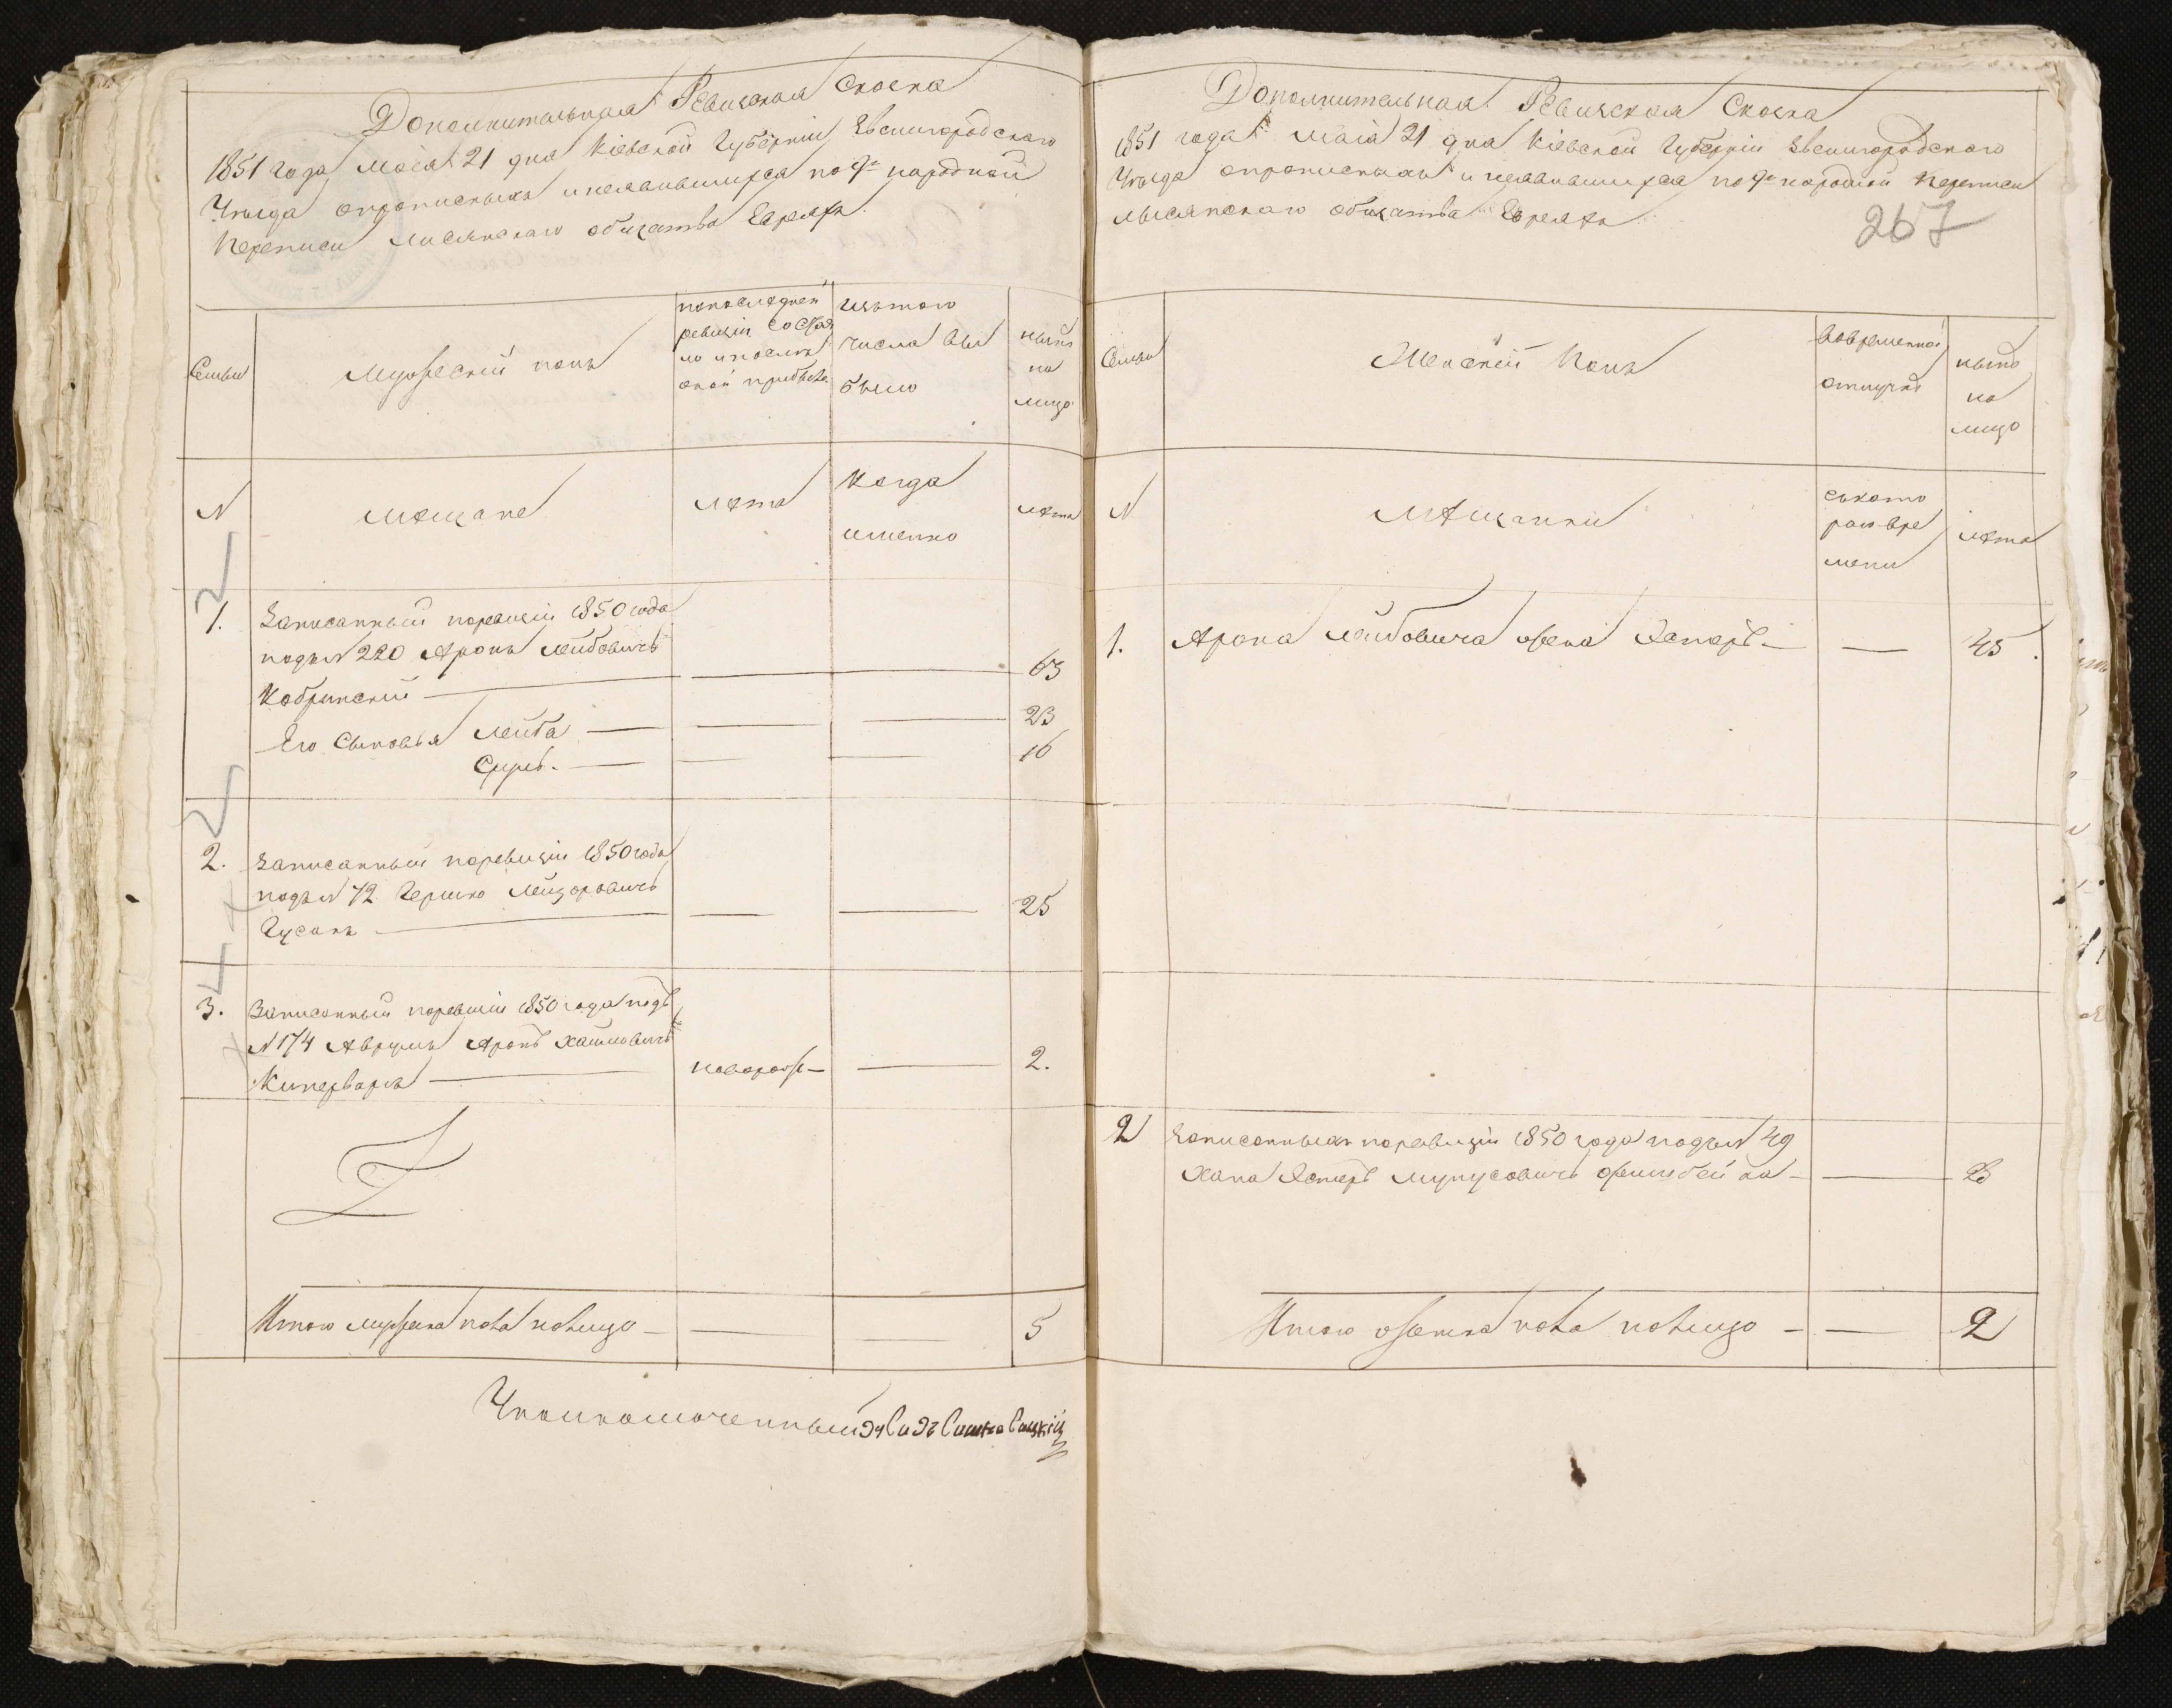 Дополнительная Ревизская Скаска
1851 года Маія 21 дня Кіевской Губерніи Звенигородскаго
Уезда о прописныхъ и неявившихся по 9й народной
Переписи Лисянскаго общества Евреяхъ.
Семьи
Мужескій полъ
по последней
ревизіи состоя
ло и после
оной прибыло
изъ того
числа вы
было
ныне
на
лицо
N
Мещане
Лета
Когда
именно
Лета
1.
Записанный по ревизіи 1850 года
подъ N 220 Аронъ Лейбовичъ
Кобринскій
63
Его сыновья Лейба
23
Сруль
16
2.
Записанный по ревизіи 1850 года
подъ N 72 Гершко Лейзоровичъ
Гусакъ
25
3.
Записанный по ревизіи 1850 года подъ
N 174 Аврумъ Аронъ Хаимовичъ
новорож
2.
Итого мужеска пола на лицо
5
Уполномоченный
Дополнительная Ревизская Скаска
1851 года Маія 21 дня Кіевской Губерніи Звенигородскаго
Уезда о прописныхъ и неявившихся по 9й народной переписи
Лысянскаго общества Евреяхъ
267
Семьи
Женскій Полъ
Во временной
отлучке
ныне
на
лицо
N
Мещанки
съ кото
раго вре
мени
Лета
1.
Арона Лейбовича жена Эстеръ
45
2
Записанная по ревизіи 1850 года подъ N 49
Хана Эстеръ
Итого женска пола на лицо
2